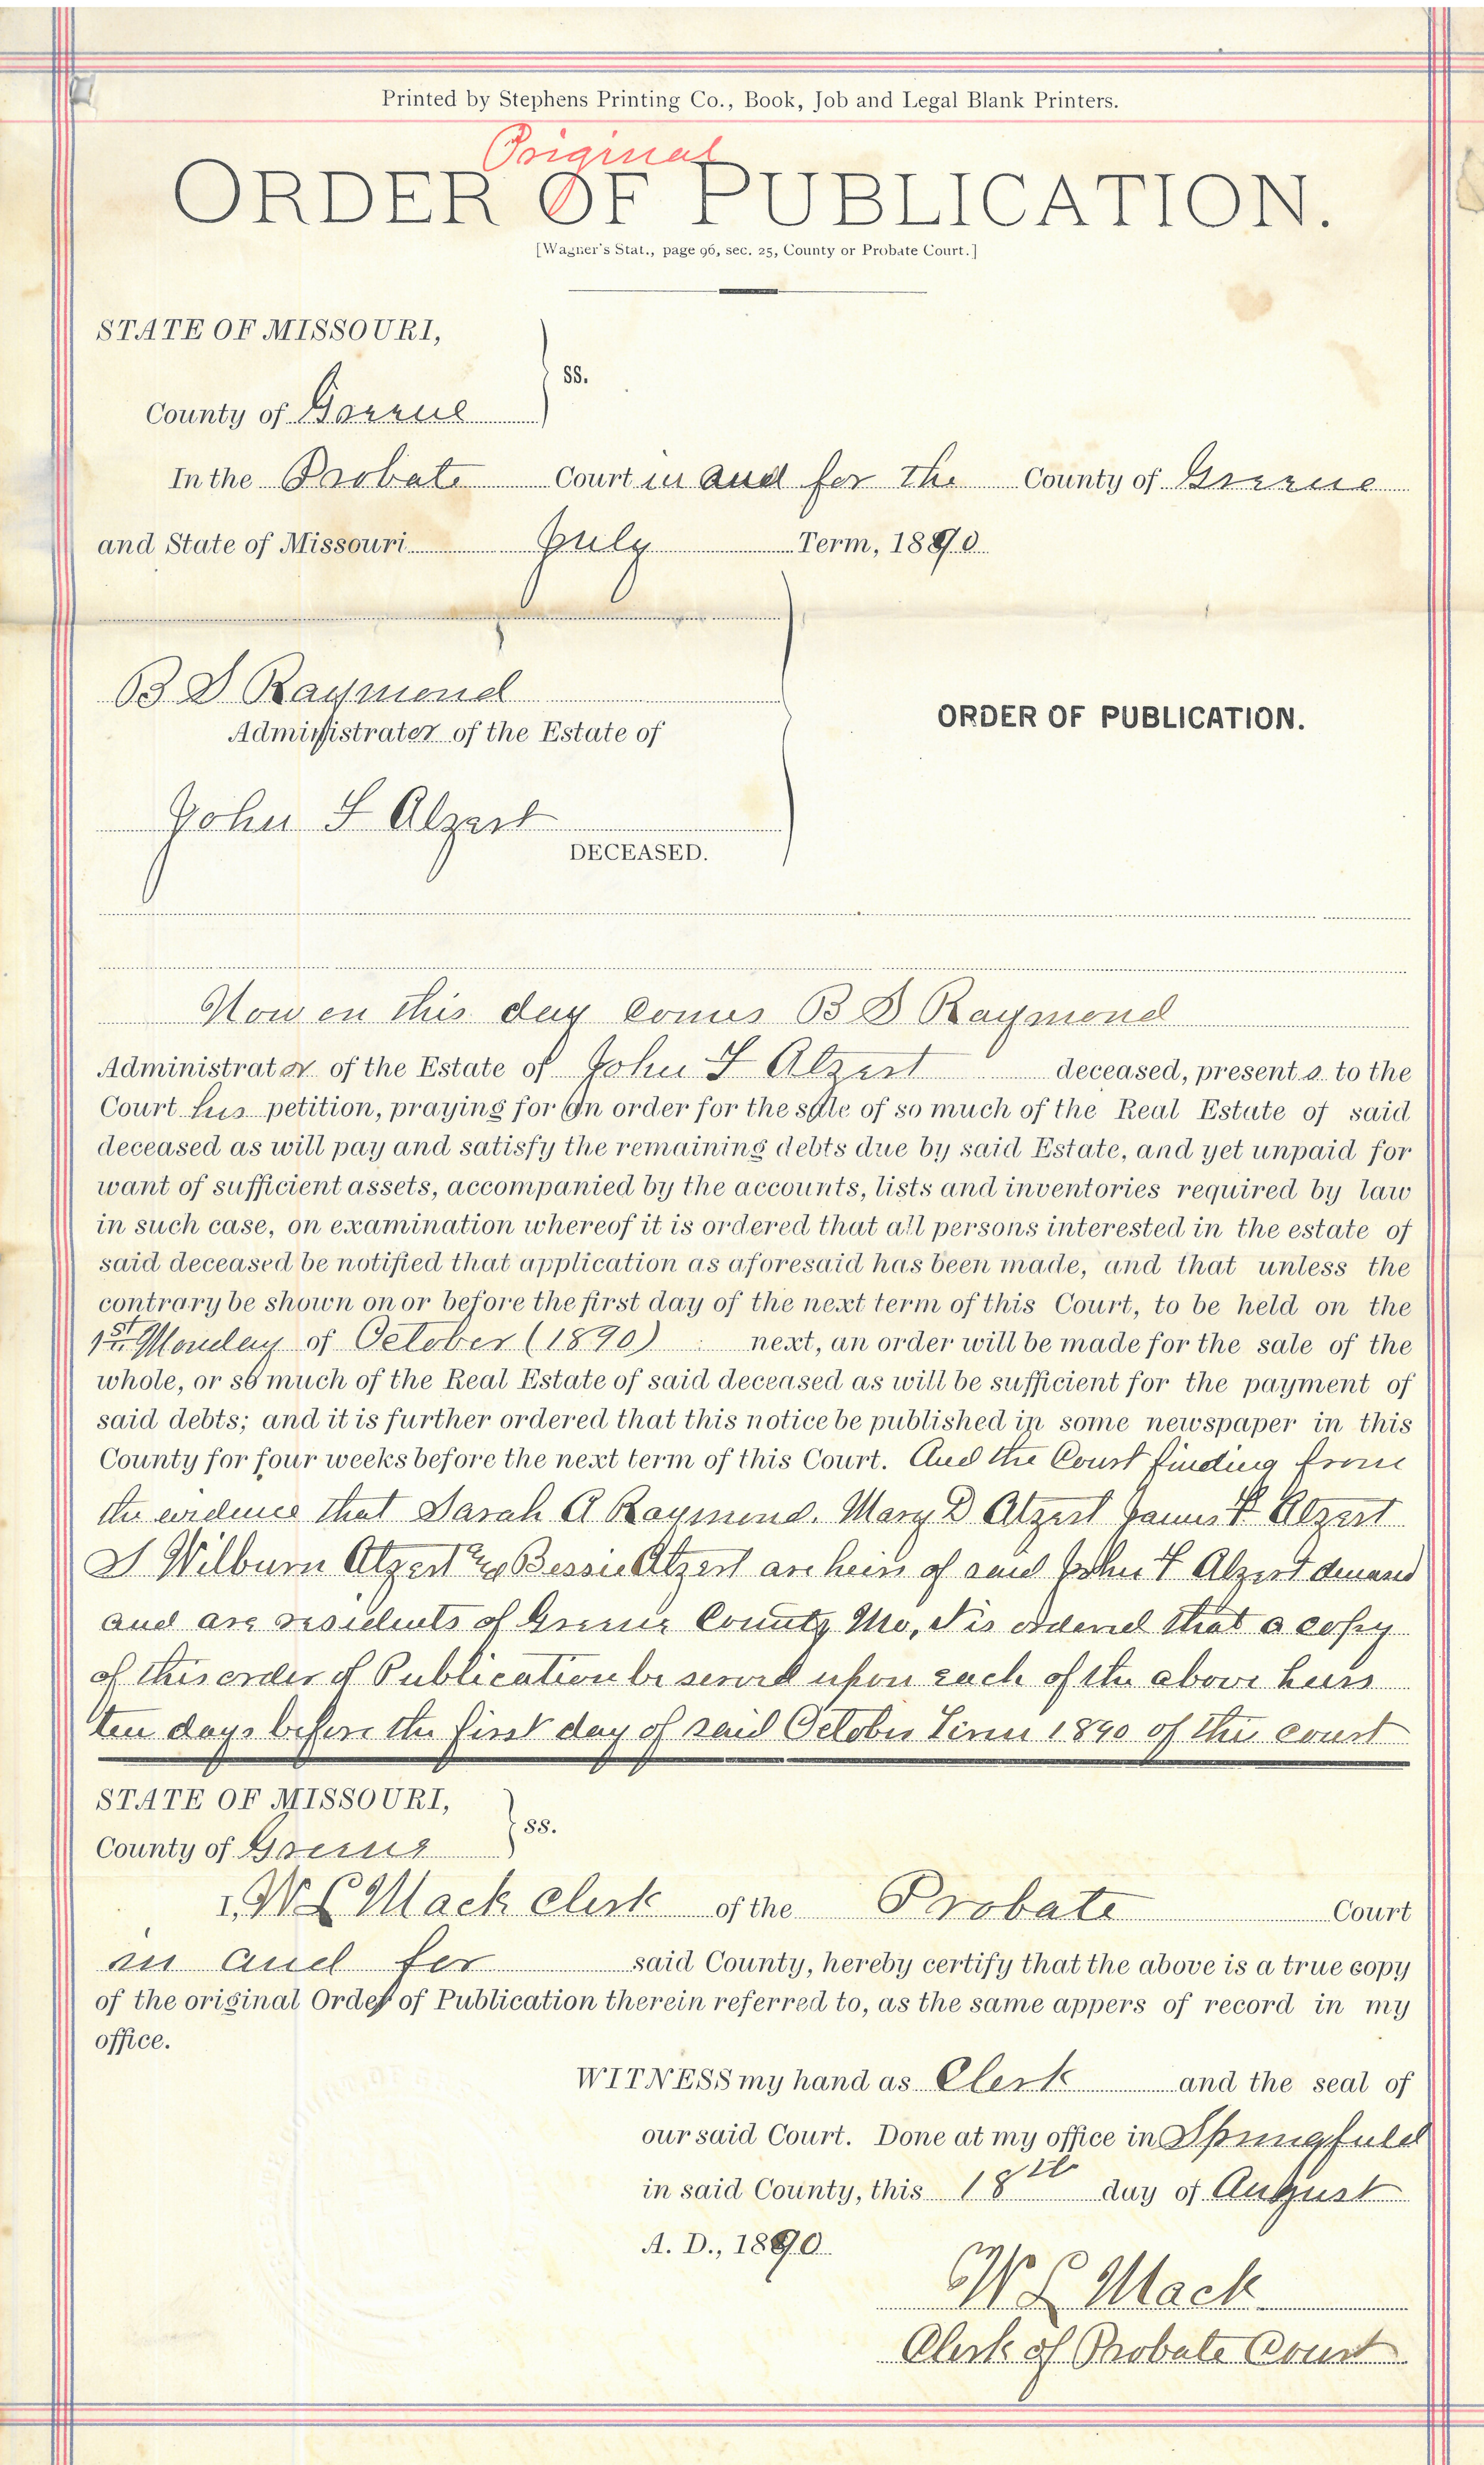 Printed by Stephens Printing Co., Book, Job and Legal Blank Printers.
Original
ORDER OF PUBLICATION.
[Wagner's Stat., page 96, sec. 25, County or Probate Court.]
STATE OF MISSOURI,
ss.
County of Greene
In the Probate Court in and for the County of Greene
and State of Missouri July Term, 1890
B S Raymond
Administrator of the Estate of
ORDER OF PUBLICATION.
John F Alzert
DECEASED.
Now on this day comes B S Raymond
Administrator of the Estate of John F Alzert deceased, presents to the
Court his petition, praying for an order for the sale of so much of the Real Estate of said
deceased as will pay and satisfy the remaining debts due by said Estate, and yet unpaid for
want of sufficient assets, accompanied by the accounts, lists and inventories required by law
in such case, on examination whereof it is ordered that all persons interested in the estate of
said deceased be notified that application as aforesaid has been made, and that unless the
contrary be shown on or before the first day of the next term of this Court, to be held on the
1st Monday of October (1890) next, an order will be made for the sale of the
whole, or so much of the Real Estate of said deceased as will be sufficient for the payment of
said debts; and it is further ordered that this notice be published in some newspaper in this
County for four weeks before the next term of this Court. And the Court finding from
the evidence that Sarah A Raymond. Mary D Alzert James F Alzert
S Wilburn Alzert & Bessie Alzert are heirs of said John F Alzert deceased
and are residents of Greene County Mo, it is ordered that a copy
of this order of Publication be served upon each of the above heirs
ten days before the first day of said October Term 1890 of this court
STATE OF MISSOURI,
ss.
County of Greene
I, W L Mack clerk of the Probate Court
in and for said County, hereby certify that the above is a true copy
of the original Order of Publication therein referred to, as the same appers of record in my
office.
WITNESS my hand as Clerk and the seal of
our said Court. Done at my office in Springfield
in said County, this 18th day of August
A. D., 1890
W L Mack
Clerk of Probate Court